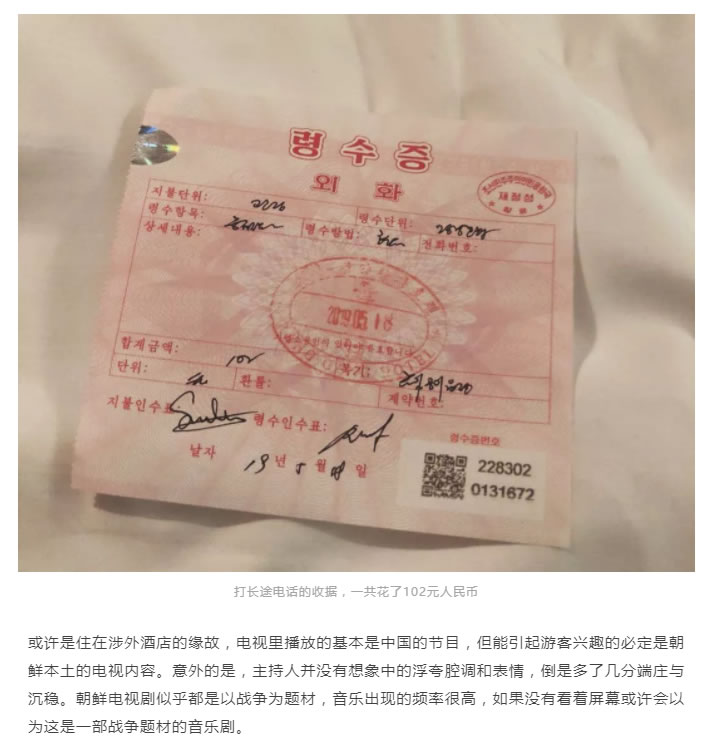 령수증
외화
조선민주주의인민공화국
재정성
지불단위:
령수항목:
령수단위:
상세내용:
령수방법:
전화번호:
2019.05.18
합계금액:
102
단위:
환률:
제약번호:
지불인수표:
령수인수표:
날자
19년 5월 18일
령수증번호
228302
0131672
打长途电话的收据，一共花了102元人民币
或许是住在涉外酒店的缘故，电视里播放的基本是中国的节目，但能引起游客兴趣的必定是朝
鲜本土的电视内容。意外的是，主持人并没有想象中的浮夸腔调和表情，倒是多了几分端庄与
沉稳。朝鲜电视剧似乎都是以战争为题材，音乐出现的频率很高，如果没有看着屏幕或许会以
为这是一部战争题材的音乐剧。